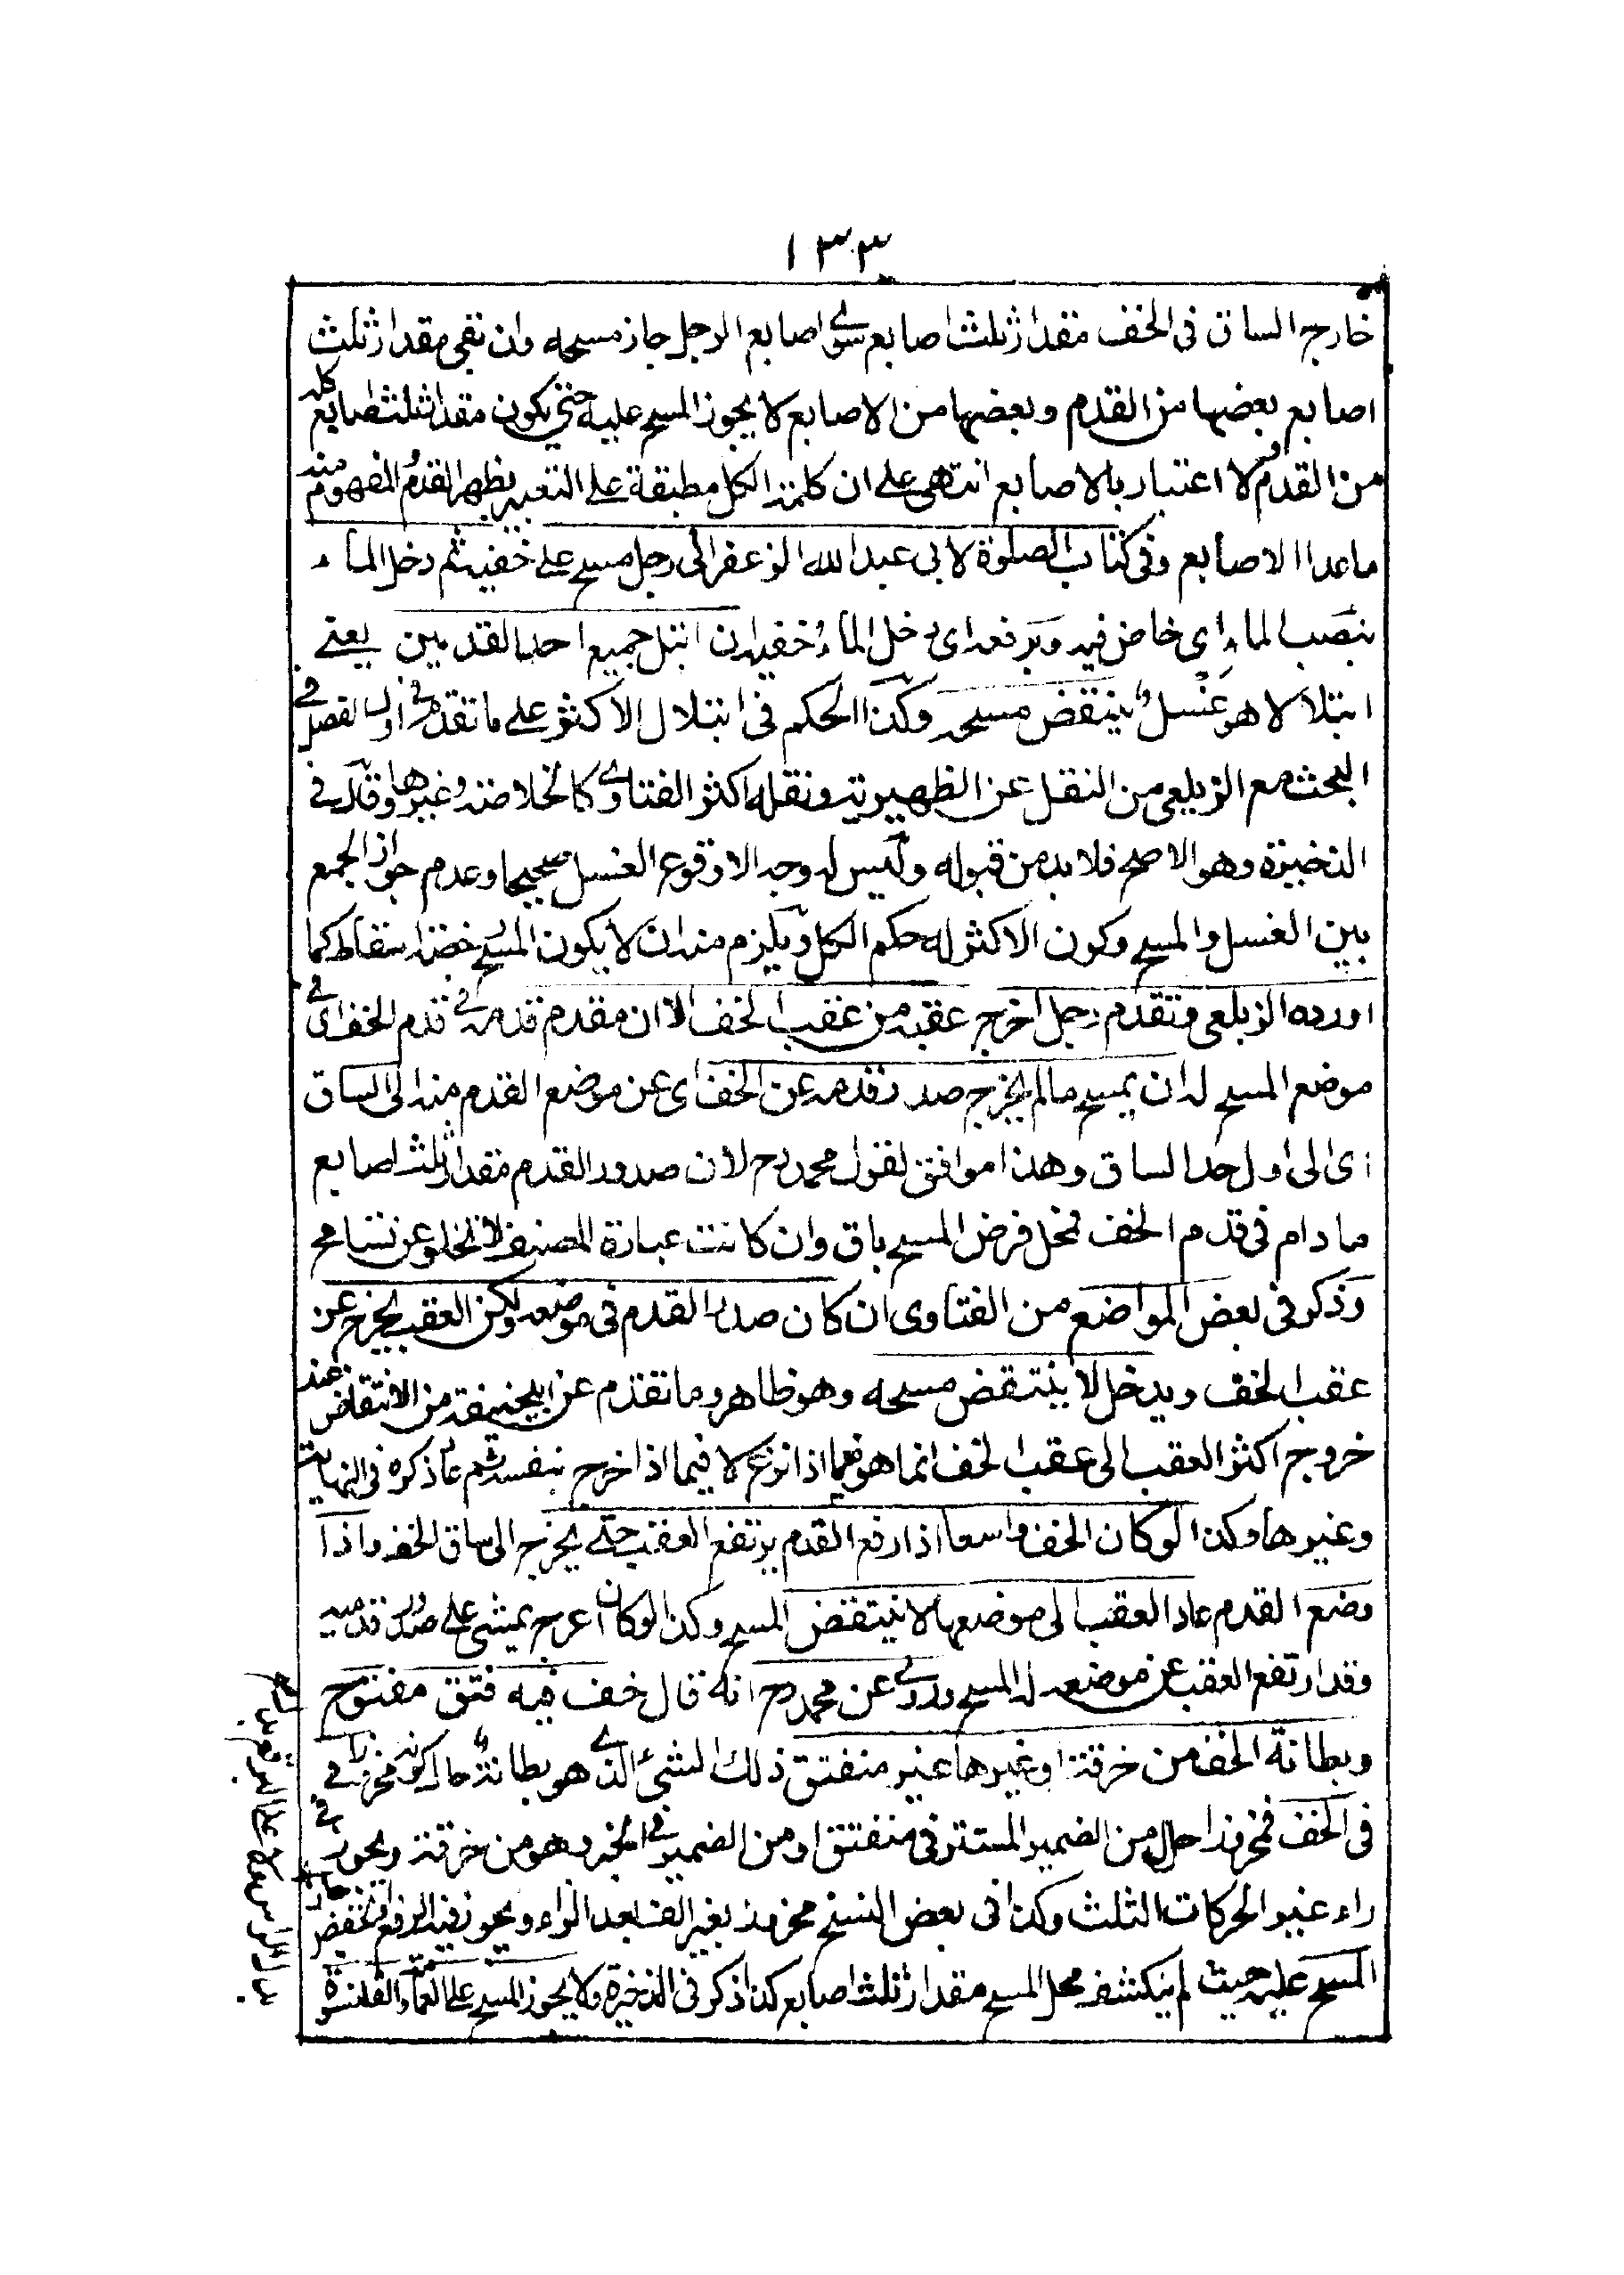 ١٣٣
خارج الساق فى الخف مقدار ثلث اصابع سوى اصابع الرجل جاز مسحه وان بقى مقدار ثلث
اصابع بعضها من القدم وبعضها من الاصابع لا يجوز المسح عليه حتى يكون مقدار ثلث اصابع كله
من القدم ولا اعتبار بالاصابع انتهى على ان كلمة الكل مطبقة على التعبير بظهر القدم المفهوم منه
ماعدا الاصابع وفى كتاب الصلوة لابى عبد الله الزعفرانى رجل مسح على خفيه ثم دخل الماء
بنصب الماء اى خاض فيه وبرفعه اى دخل الماء خفيه ان ابتل جميع احد القدمين يعنى
ابتلالا هو غسل ينتقض مسحه وكذا الحكم فى ابتلال الاكثر على ما تقدم فى اول الفصل فى
البحث مع الزيلعى من النقل عن الظهيرية ونقله اكثر الفتاوى كالخلاصة وغيرها وقال فى
الذخيرة وهو الاصح فلا بد من قبوله وليس له وجه الا وقوع الغسل صحيحا وعدم جواز الجمع
بين الغسل والمسح وكون الاكثر له حكم الكل ويلزم منه ان لا يكون المسح رخصة اسقاط كما
اورده الزيلعى وتقدم رجل اخرج عقبه من عقب الخف الا ان مقدم قدمه فى قدم الخف اى فى
موضع المسح له ان يمسح مالم يخرج صدر قدمه عن الخف اى عن موضع القدم منه الى الساق
اى الى اول حد الساق وهذا موافق لقول محمد رح لان صدور القدم مقدار ثلث اصابع
ما دام فى قدم الخف فمحل فرض المسح باق وان كانت عبارة المصنف لا تخلو عن تسامح
وذكر فى بعض المواضع من الفتاوى ان كان صدر القدم فى موضعه ولكن العقب يخرج عن
عقب الخف ويدخل لا ينتقض مسحه وهو ظاهر وما تقدم عن ابيحنيفة من الانتقاض عند
خروج اكثر العقب الى عقب الخف انما هو فيما اذا نزع لا فيما اذا خرج بنفسه ثم عاد ذكره فى النهاية
وغيرها وكذا لو كان الخف واسعا اذا رفع القدم يرتفع العقب حتى يخرج الى ساق الخف واذا
وضع القدم عاد العقب الى موضعها لا ينتقض المسح وكذا لو كان اعرج يمشى على صدور قدميه
وقد ارتفع العقب عن موضعه له المسح وروى عن محمد رح انه قال خف فيه فتق مفتوح
وبطانة الخف من خرقة او غيرها غير منفتق ذلك الشئ الذى هو بطانة حال كونه مخرزا فى
فى الخف فمخرزا حال من الضمير المستتر فى منفتق او من الضمير فى الخبر وهو من خرقة ويجوز فى
راء غير الحركات الثلث وكذا فى بعض النسخ مخرز بغير الف بعد الزاء ويجوز فيه الرفع والخفض جاز
المسح عليه حيث لم ينكشف محل المسح مقدار ثلث اصابع كذا ذكر فى الذخيرة ولا يجوز المسح على العمامة والقلنسوة